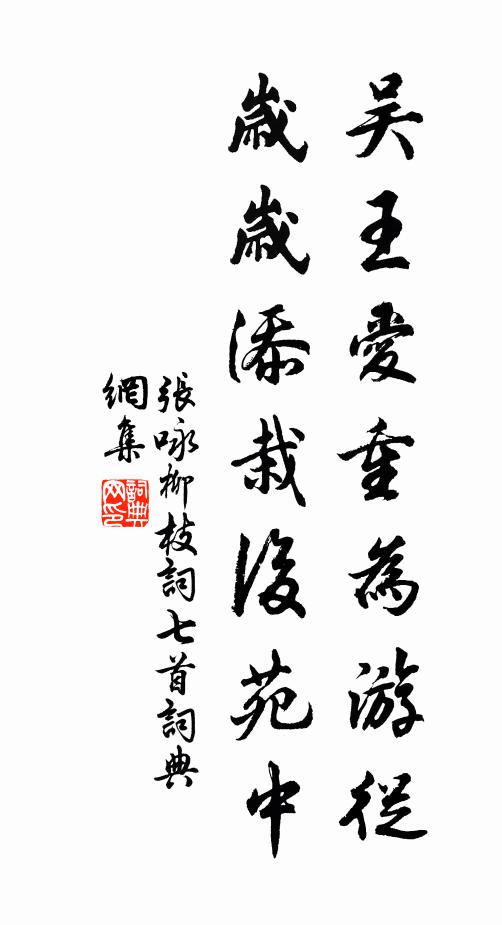 吴王愛重為游從
歲歲添栽後苑中
張咏柳枝詞七首詞典
網集
詞典
网印